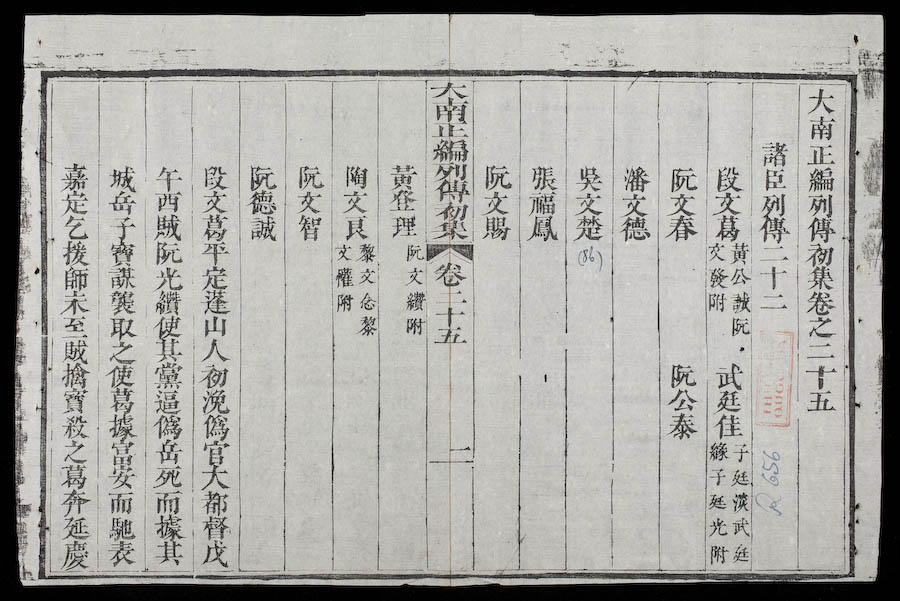 大南正編列傳初集卷之二十五
諸臣列傳二十二
段文葛 黃公誠阮文發附 武廷佳 子廷漢武廷緣子廷光附
阮文春 阮公泰
潘文德
吳文楚
(86)
張福鳳
阮文賜
大南正編列傳初集 卷二十五 一
黃登理 阮文纘附
陶文良 黎文忩黎文懽附
阮文智
阮德誠
段文葛平定蓬山人初浼偽官大都督戊
午西賊阮光纘使其黨逼偽岳死而據其
城岳子寶謀襲取之使葛據富安而馳表
嘉定乞援師未至賊擒寶殺之葛奔延慶
R 656